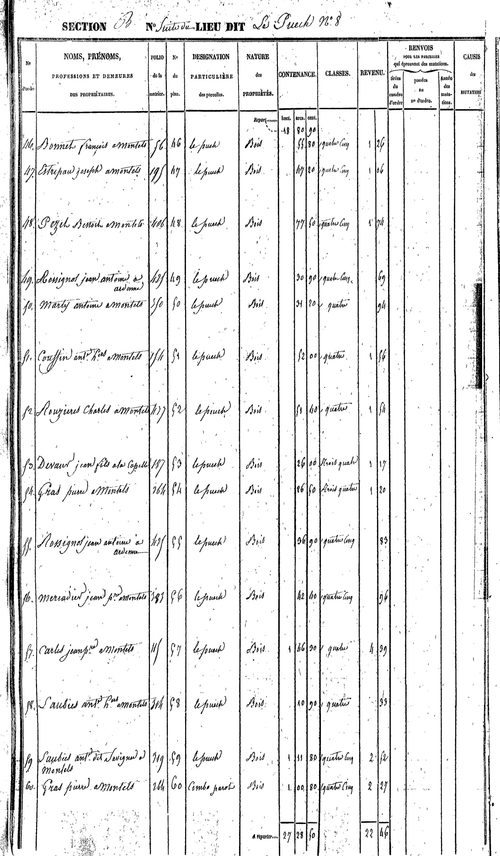 SECTION B No Suite du LIEU DIT Le Puech No 8
No d'ordre
NOMS, PRÉNOMS,
PROFESSIONS ET DEMEURES
DES PROPRIÉTAIRES.
FOLIO de la matrice.
No du plan.
DÉSIGNATION
PARTICULIÈRE
des parcelles.
NATURE
des
PROPRIÉTÉS.
CONTENANCE.
CLASSES.
REVENU.
RENVOIS
POUR LES PARCELLES
qui éprouvent des mutations.
CAUSES
des
MUTATIONS
Report hect. ares. cent.
18 80 90
46. Bonnet françois a montels 56 46 le puech Bois 55 80 quatre cinq 1 26
47. Estripau joseph a montels 195 47 le puech Bois 47 20 quatre cinq 1 06
48. Pezet Benoit a montels 406 48 le puech Bois 77 50 quatre cinq 1 74
49. Rossignol jean antoine a ardenne 435 49 le puech Bois 30 90 quatre cinq 69
50. Marty antoine a montels 350 50 le puech Bois 31 20 quatre 94
51. Couffin ant. hers a montels 154 51 le puech Bois 52 00 quatre 1 56
52 Rouzieres Charles a montels 437 52 le puech Bois 51 40 quatre 1 54
53. Devaux jean fils a la Capelle 187 53 le puech Bois 26 00 trois quatre 1 17
54. Gras pierre a Montels 264 54 le puech Bois 26 50 trois quatre 1 20
55. Rossignol jean antoine a ardenne 435 55 le puech Bois 36 90 quatre cinq 83
56. Mercadier jean pre a montels 383 56 le puech Bois 42 40 quatre cinq 96
57. Carles jean pre a Montels 115 57 le puech Bois 1 46 30 quatre 4 39
58. Saubies ant. hers a montels 304 58 le puech Bois 10 90 quatre 33
59 Saubies ant. dit Savigne a Montels 319 59 le puech Bois 1 11 80 quatre cinq 2 52
60. Gras pierre a Montels 264 60 Combo parot Bois 1 00 80 quatre cinq 2 27
A reporter 27 28 50 22 46